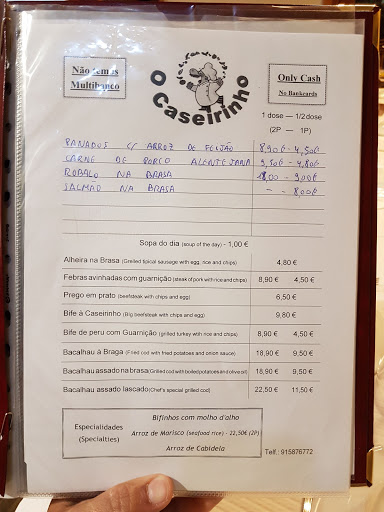 Não temos
Multibanco
O Caseirinho
Only Cash
No Bankcards
1 dose — 1/2 dose
(2P — 1P)
PANADOS C/ ARROZ DE FEIJÃO 8,90€ - 4,50€
CARNE DE PORCO ALENTEJANA 9,50€ - 4,80€
ROBALO NA BRASA 18,00 - 9,00€
SALMAO NA BRASA - - 8,00€
Sopa do dia (soup of the day) - 1,00 €
Alheira na Brasa (Grilled tipical sausage with egg, rice and chips) 4,80 €
Febras avinhadas com guarnição (steak of pork with rice and chips) 8,90 € 4,50 €
Prego em prato (beefsteak with chips and egg) 6,50 €
Bife à Caseirinho (Big beefsteak with chips and egg) 9,80 €
Bife de peru com Guarnição (grilled turkey with rice and chips) 8,90 € 4,50 €
Bacalhau à Braga (Fried cod with fried potatoes and onion sauce) 18,90 € 9,50 €
Bacalhau assado na brasa (Grilled cod with boiled potatoes and olive oil) 18,90 € 9,50 €
Bacalhau assado lascado (Chef's special grilled cod) 22,50 € 11,50 €
Especialidades
(Specialties)
Bifinhos com molho d'alho
Arroz de Marisco (seafood rice) - 22,50€ (2P)
Arroz de Cabidela
Telf.: 915876772